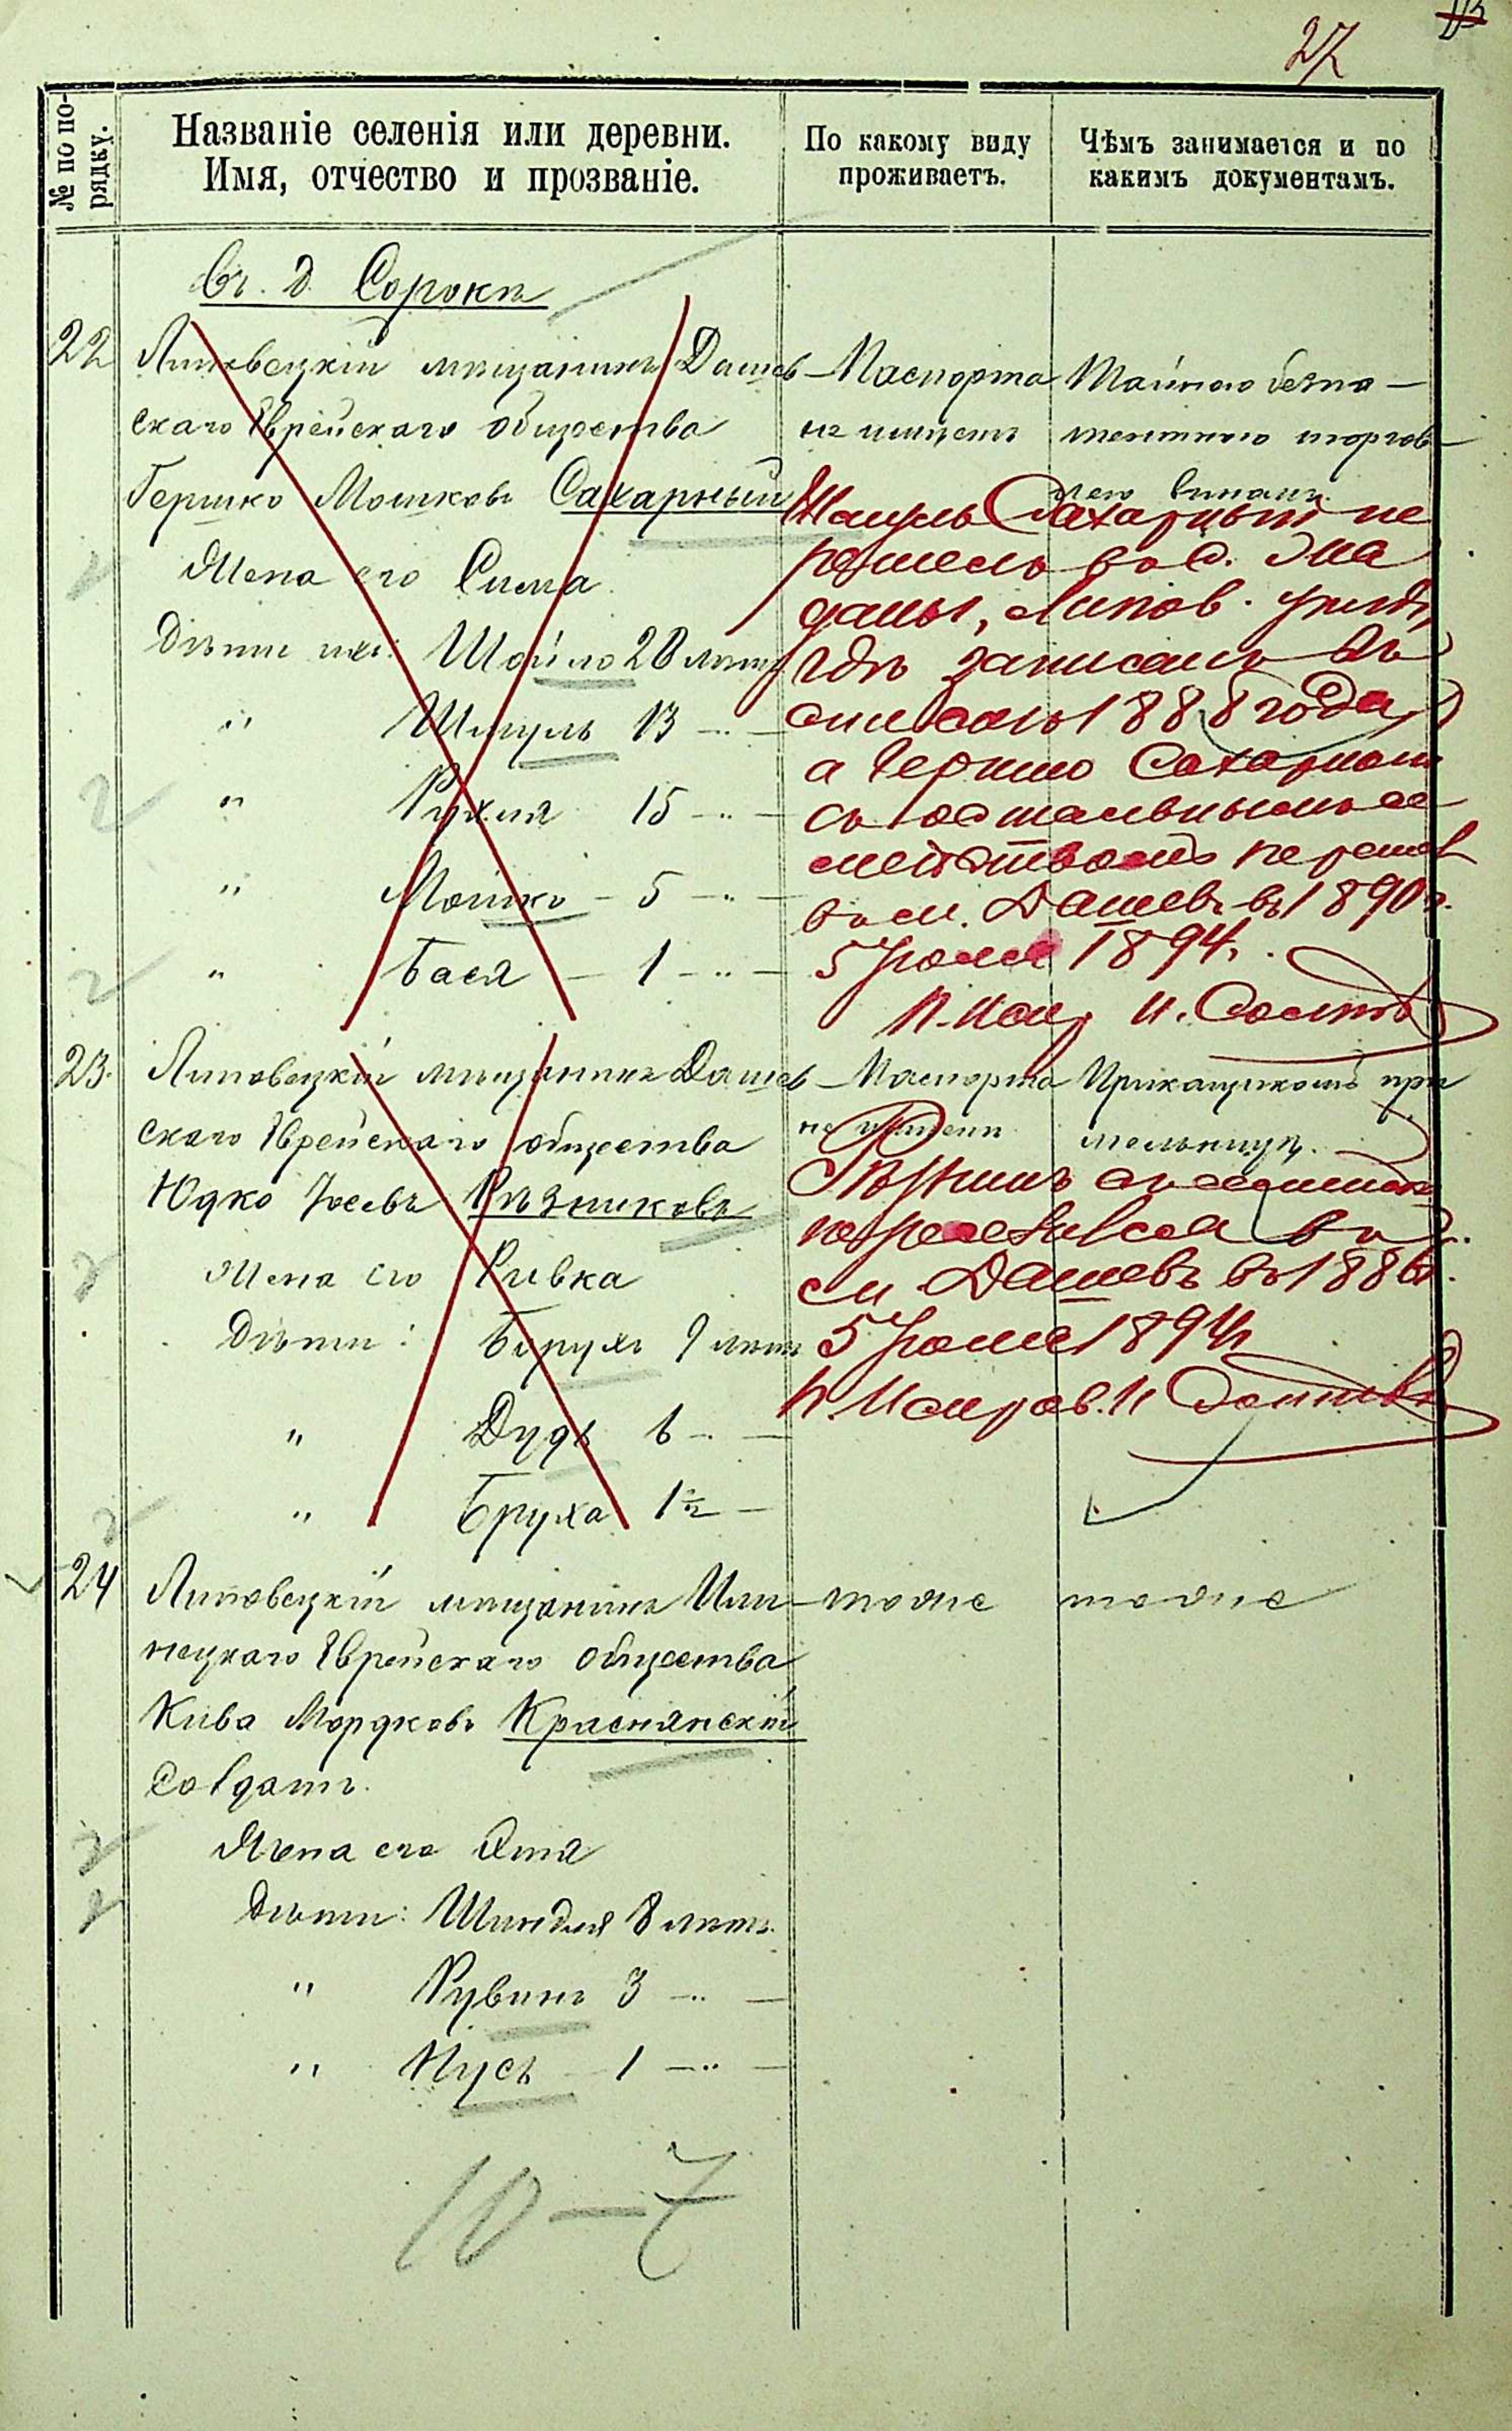 27
№ по по-
рядку.
Названіе селенія или деревни.
Имя, отчество и прозваніе.
По какому виду
проживаетъ.
Чѣмъ занимается и по
какимъ документамъ.
Въ д. Сорока
22 Липовецкій мѣщанинъ Дашев-
скаго Еврейскаго общества
Гершко Мошковъ Сахарный
Жена его Сима
Дѣти ихъ: Шойло 20 лѣтъ
" Шмуль 13 - " -
" Рухля 15 - " -
" Мошко - 5 - " -
" Бася - 1 - " -
Паспорта
не имѣетъ
Тайною безпа-
тентною торгов-
лею виномъ.
Сахарный пе
решелъ въ с.
даны, Липов. уѣзда,
гдѣ записанъ въ
1888 года,
а Гершко Сахарный
съ остальнымъ се
мействомъ перешелъ
въ м. Дашевъ въ 1890 г.
5 Іюля 1894 г.
23. Липовецкій мѣщанинъ Дашев-
скаго Еврейскаго общества
Юдко Іосевъ Рѣзниковъ
Жена его Ривка
Дѣти: Борухъ 9 лѣтъ
" Дудь 6 - " -
" Бруха 1½ -
Паспорта
не имѣетъ
Прикащикомъ при
мельницѣ.
съ семействомъ
переселился въ
м. Дашевъ въ 1886 г.
5 Іюля 1894 г.
24 Липовецкій мѣщанинъ Или-
нецкаго Еврейскаго общества
Кива Мордковъ Краснянскій
солдатъ.
Жена его Этя
Дѣти: Шиндля 8 лѣтъ.
" Рувинъ 3 - " -
" Нусь - 1 - " -
тоже
тоже
10 - 7